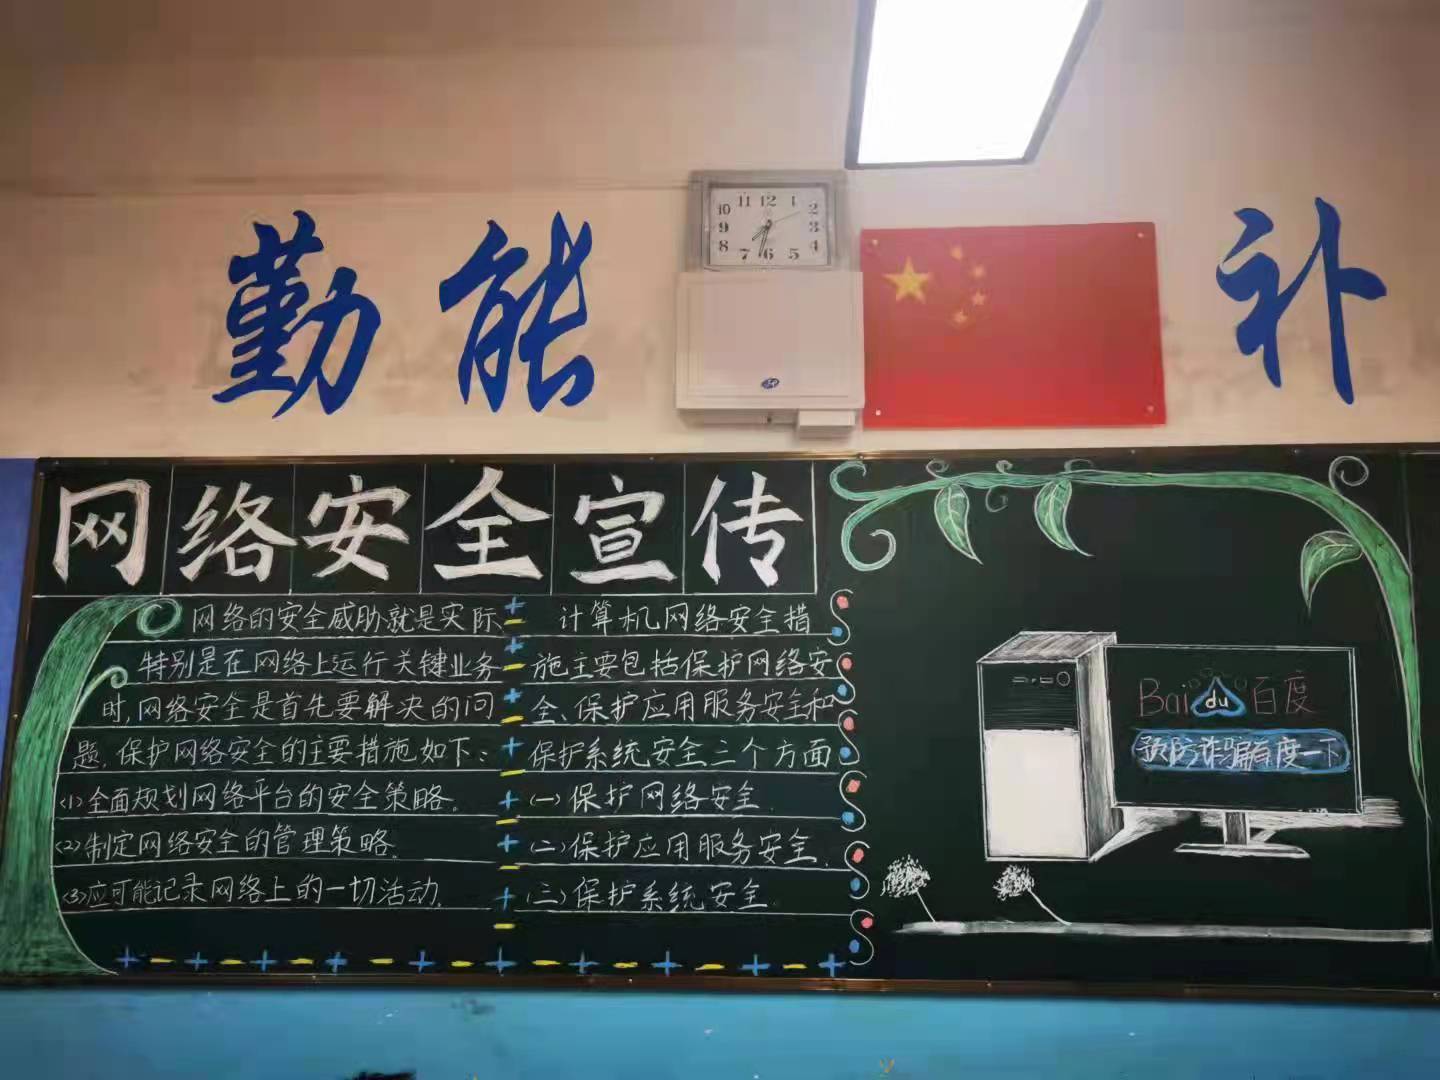 勤能补
11 12 1
10 2
9 3
8 4
7 6 5
网络安全宣传
网络的安全威胁就是实际
特别是在网络上运行关键业务
时,网络安全是首先要解决的问
题,保护网络安全的主要措施如下:
(1)全面规划网络平台的安全策略。
(2)制定网络安全的管理策略。
(3)应可能记录网络上的一切活动。
计算机网络安全措
施主要包括保护网络安
全、保护应用服务安全和
保护系统安全三个方面
(一)保护网络安全.
(二)保护应用服务安全.
(三)保护系统安全.
Baidu百度
预防诈骗百度一下